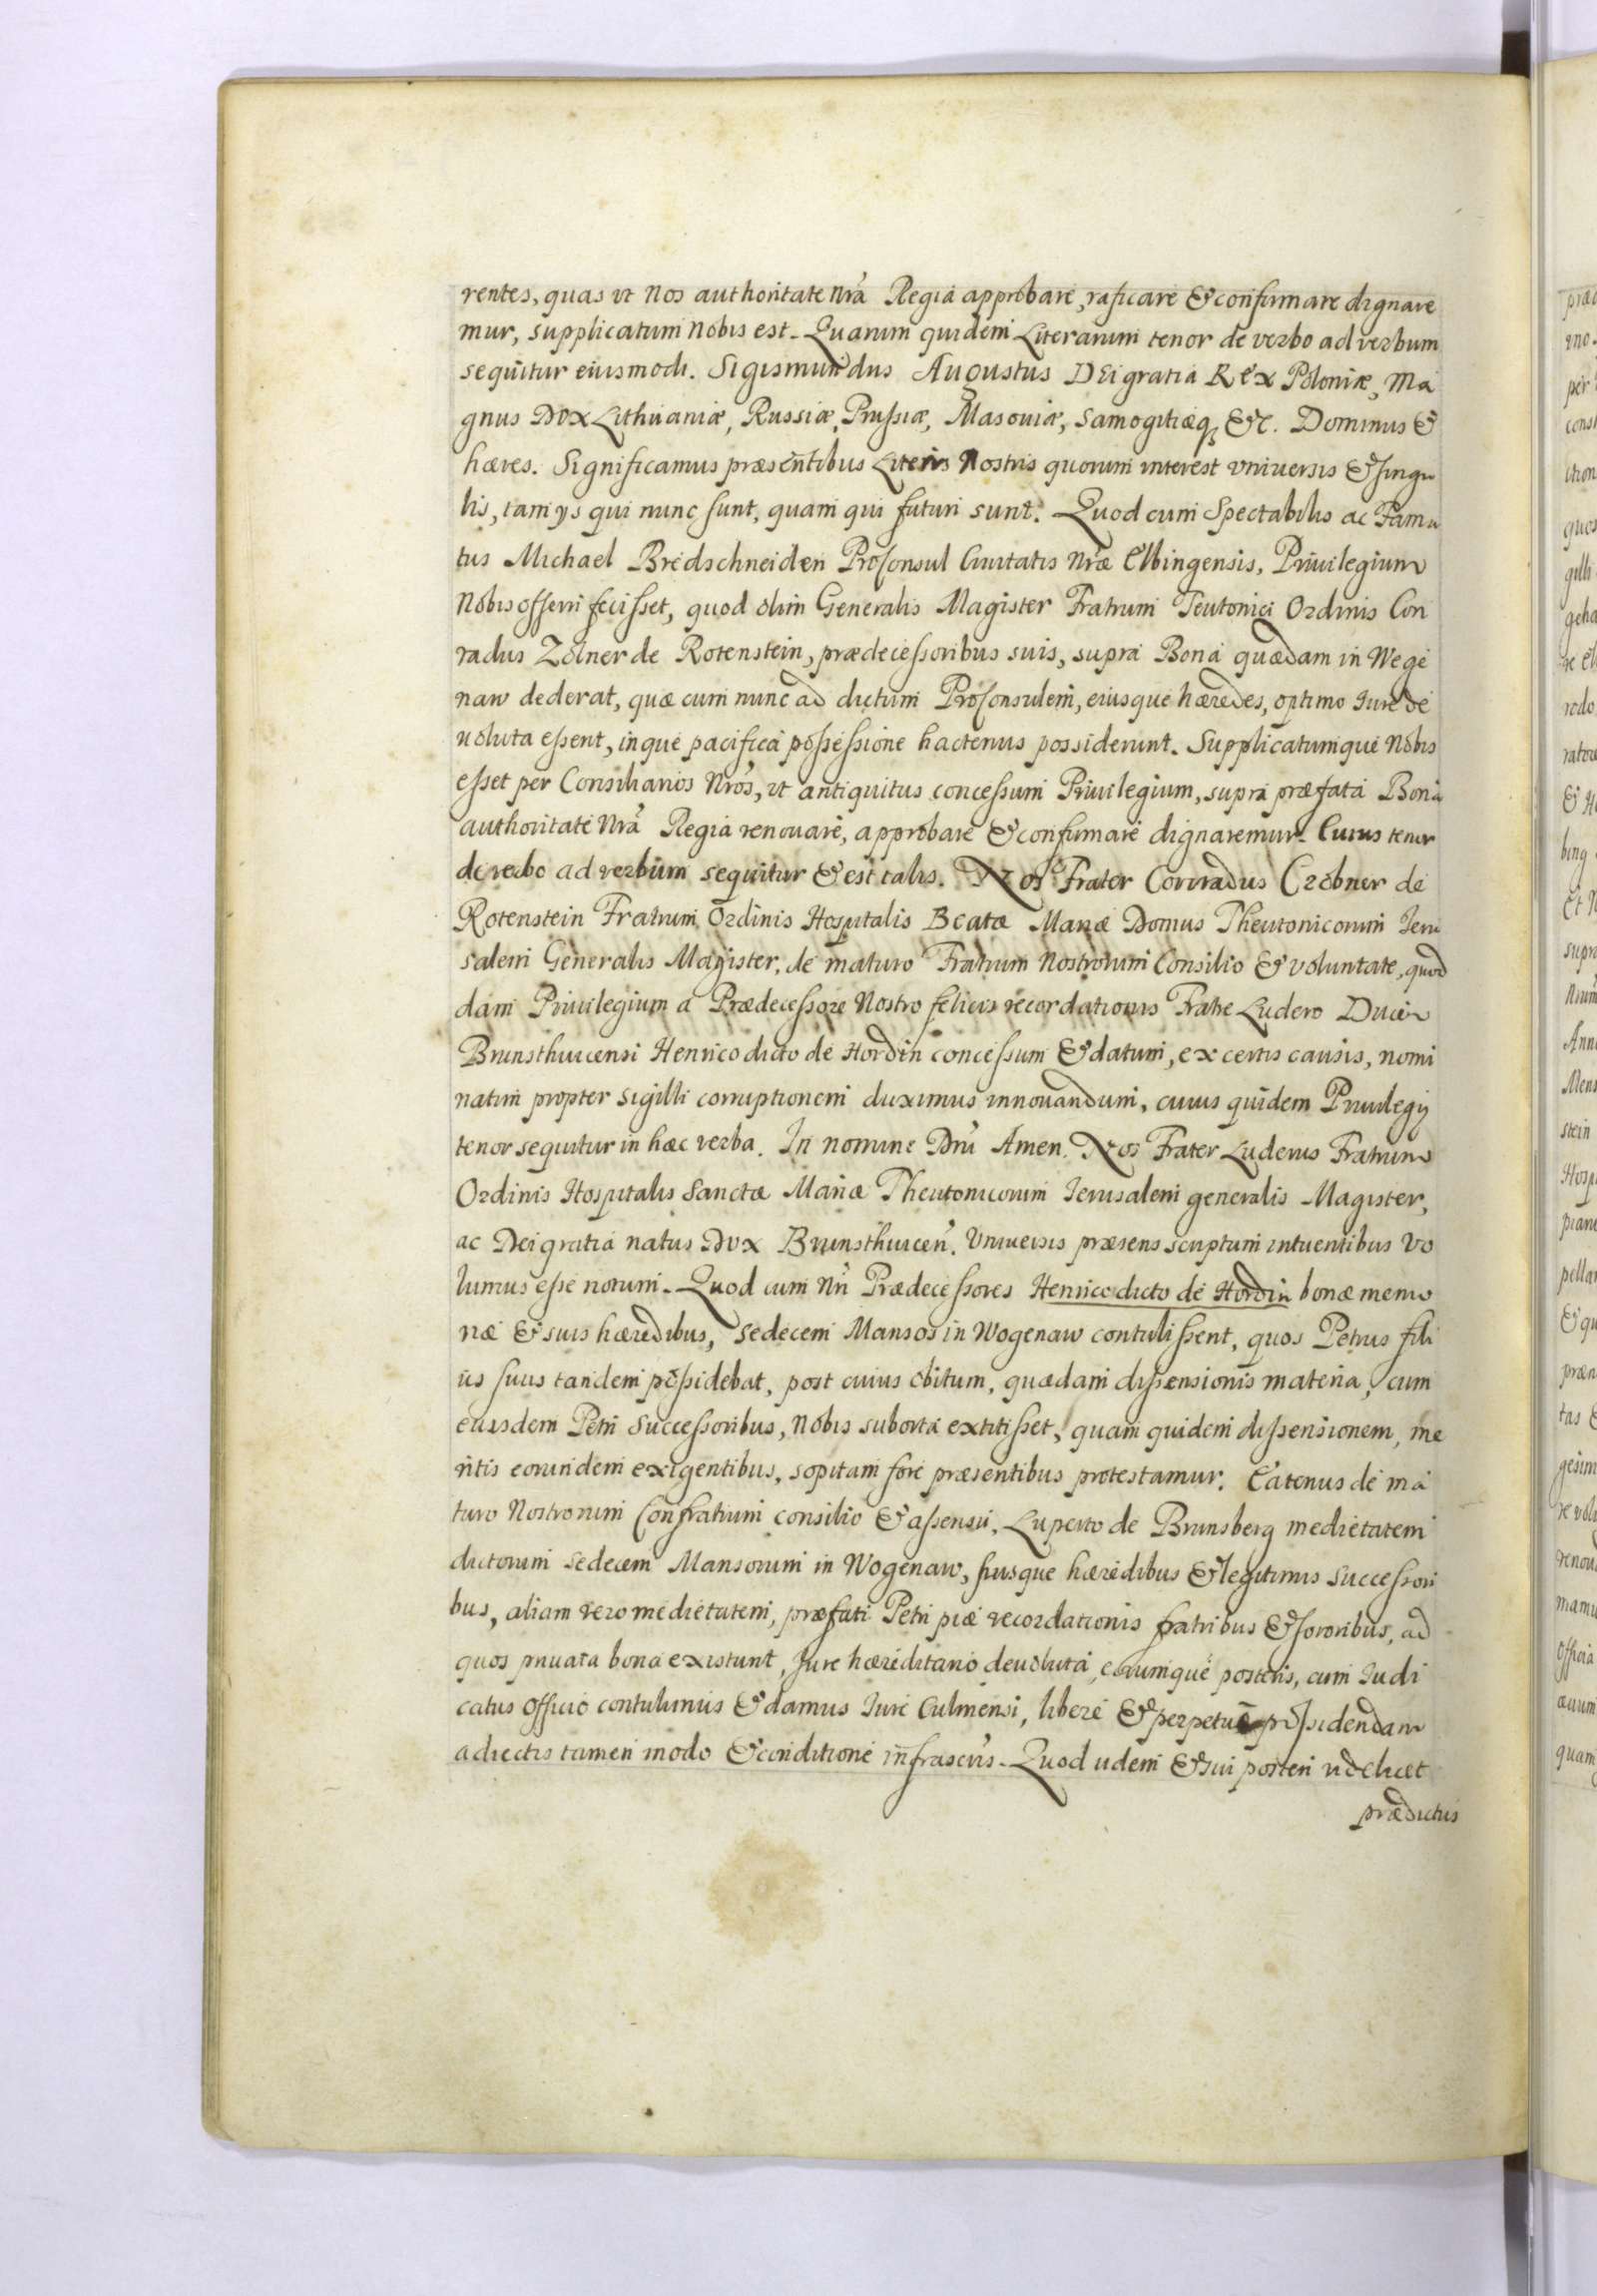 rentes, quas vt Nos authoritate Nrã Regia approbare, raficare & confirmare dignare
mur, supplicatum Nobis est. Quarum quidem Literarum tenor de verbo ad verbum
sequitur eiusmodi. Sigismundus Augustus DEi gratia REx Poloniæ, Ma
gnus Dvx Lithuaniæ, Russiæ, Prussiæ, Masoviæ, Samogitiæq; &c. Dominus &
hæres. Significamus præsentibus Literis Nostris quorum interest vniuersis & singu
lis, tam ys qui nunc sunt, quam qui futuri sunt. Quod cum Spectabilis ac Fama
tus Michael Bredschneiden ProConsul Ciuitatis Nræ Elbingensis, Priuilegium
Nobis offerri fecisset, quod olim Generalis Magister Fratrum Teutonici Ordinis Con
radus Zolner de Rotenstein, prædecessoribus suis, supra Bona quædam in Wege
naw dederat, quæ cum nunc ad dictum ProConsulem, eiusque hæredes, optimo Iure de
uoluta essent, inque pacifica possessione hactenus possiderunt. Supplicatumque Nobis
esset per Consiliarios Nrõs, vt antiquitus concessum Priuilegium, supra præfata Bona
authoritate Nrã Regia renouare, approbare & confirmare dignaremur. Cuius tenor
de verbo ad verbum sequitur & est talis. Nos Frater Conradus Czobner de
Rotenstein Fratrum Ordinis Hospitalis Beatæ Mariæ Domus Theutonicorum Ieru
salem Generalis Magister, de maturo Fratrum Nostrorum Consilio & voluntate, quod
dam Priuilegium a Prædecessore Nostro felicis recordationis Fratre Ludero Duce
Brunsthuicensi Henrico dicto de Hordin concessum & datum, ex certis causis, nomi
natim propter sigilli corruptionem duximus innouandum, cuius quidem Priuilegij
tenor sequitur in hæc verba. In nomine Dni Amen. Nos Frater Luderus Fratrum
Ordinis Hospitalis Sanctæ Mariæ Theutonicorum Ierusalem generalis Magister,
ac Dei gratia natus Dvx Brunsthuicen. Vniuersis præsens scriptum intuentibus vo
lumus esse notum. Quod cum Nri Prædecessores Henrico dicto de Hordin bonæ memo
riæ & suis hæredibus, sedecem Mansos in Wogenaw contulissent, quos Petrus fili
us suus tandem possidebat, post cuius obitum, quædam dissensionis materia, cum
eiusdem Petri Successoribus, Nobis suborta extitisset, quam quidem dissensionem, me
ritis eorundem exigentibus, sopitam fore præsentibus protestamur. Eatenus de ma
turo Nostrorum Confratrum consilio & assensu, Luperto de Brunsberg medietatem
dictorum sedecem Mansorum in Wogenaw, suisque hæredibus & legitimis successori
bus, aliam vero medietatem, præfati Petri piæ recordationis fratribus & sororibus, ad
quos priuata bona existunt, Iure hæreditario deuoluta, eorumque posteris, cum Iudi
catus officio contulimus & damus Iure Culmensi, libere & perpetuè possidendam
adiectis tamen modo & conditione infrascris. Quod iidem & sui posteri videlicet
prædictus